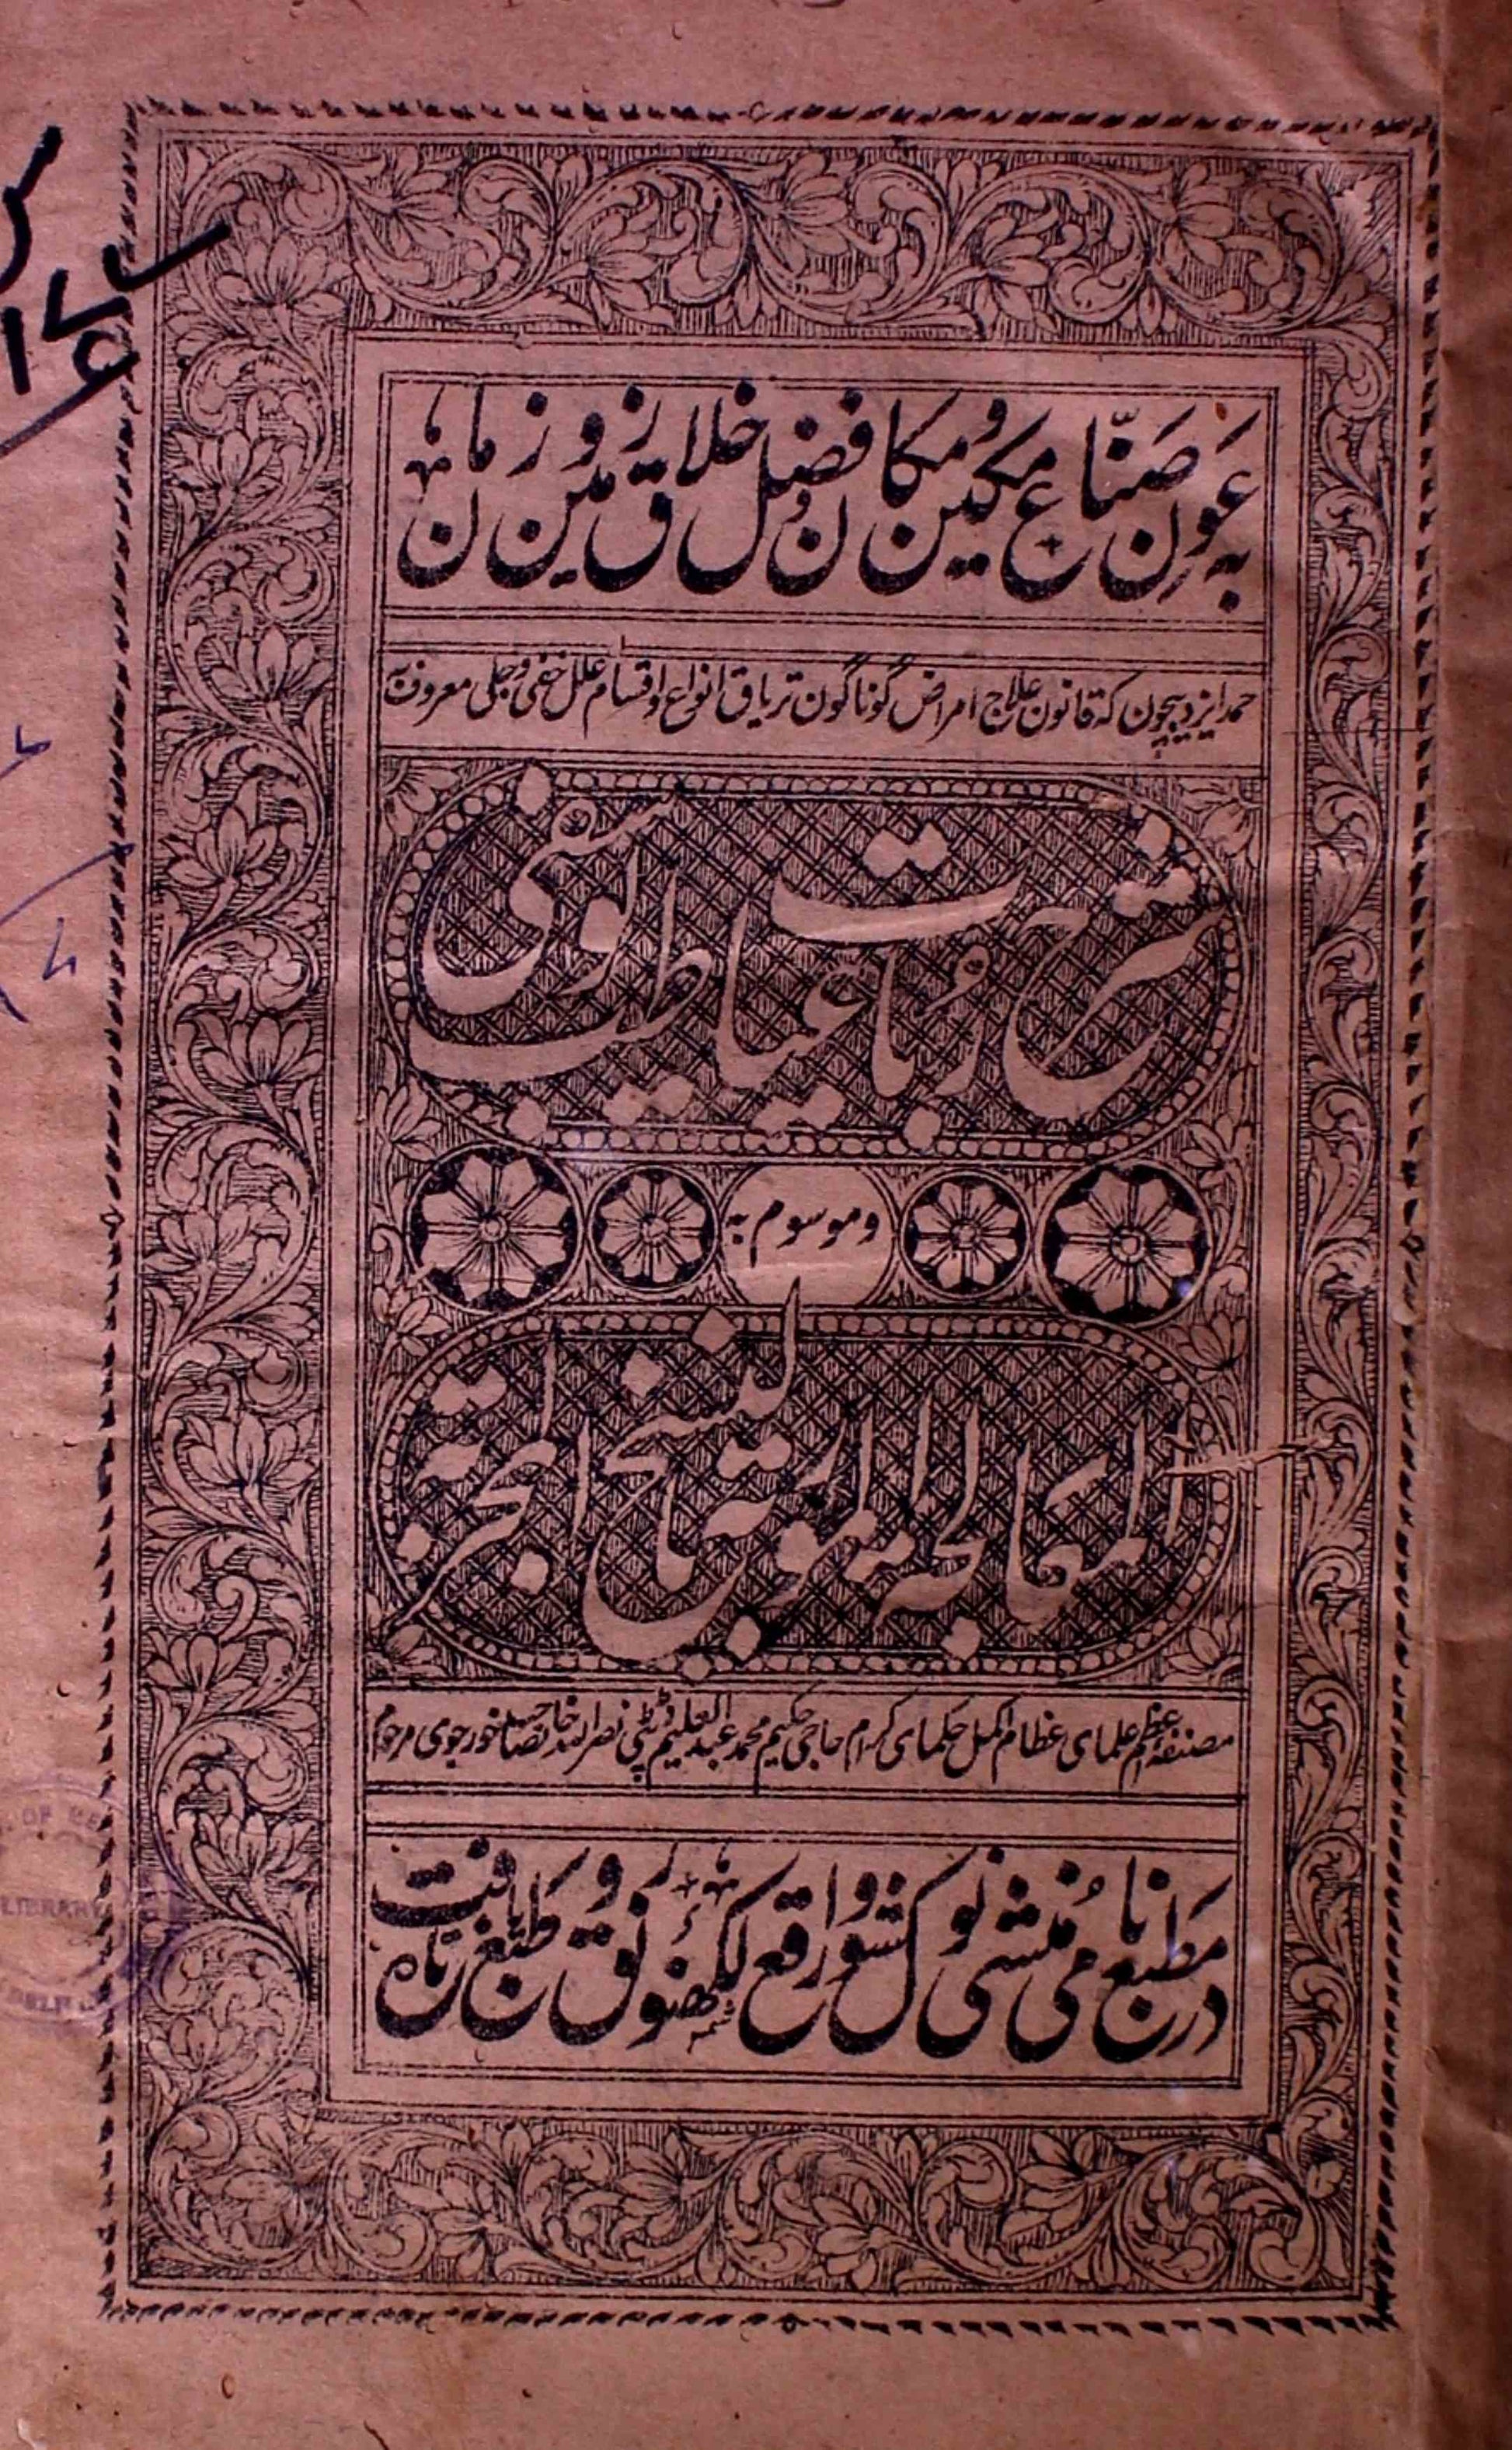 بہ عونِ صنّاع مکین و مکان و فضل خلاق زمین و زمان
حمد ایزد بیچون کہ قانون علاج امراض گوناگون تریاق انواع و اقسام علل خفی و جلی معروف بہ
شرح رباعیات طب یوسفی
و موسوم بہ
المعالجة النبویہ
مصنفہ اعظم علمای عظام اکمل حکمای کرام حاجی حکیم محمد عبد العلیم نصر اللہ خان صاحب خورجوی مرحوم
در مطبع نامی منشی نولکشور واقع لکھنؤ رونق طبع تازہ یافت
LIBRARY